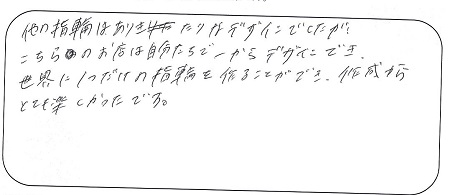 他の指輪はありきたりなデザインでしたが、
こちらのお店は自分たちで一からデザインでき、
世界に1つだけの指輪を作ることができ、作成から
とても楽しかったです。